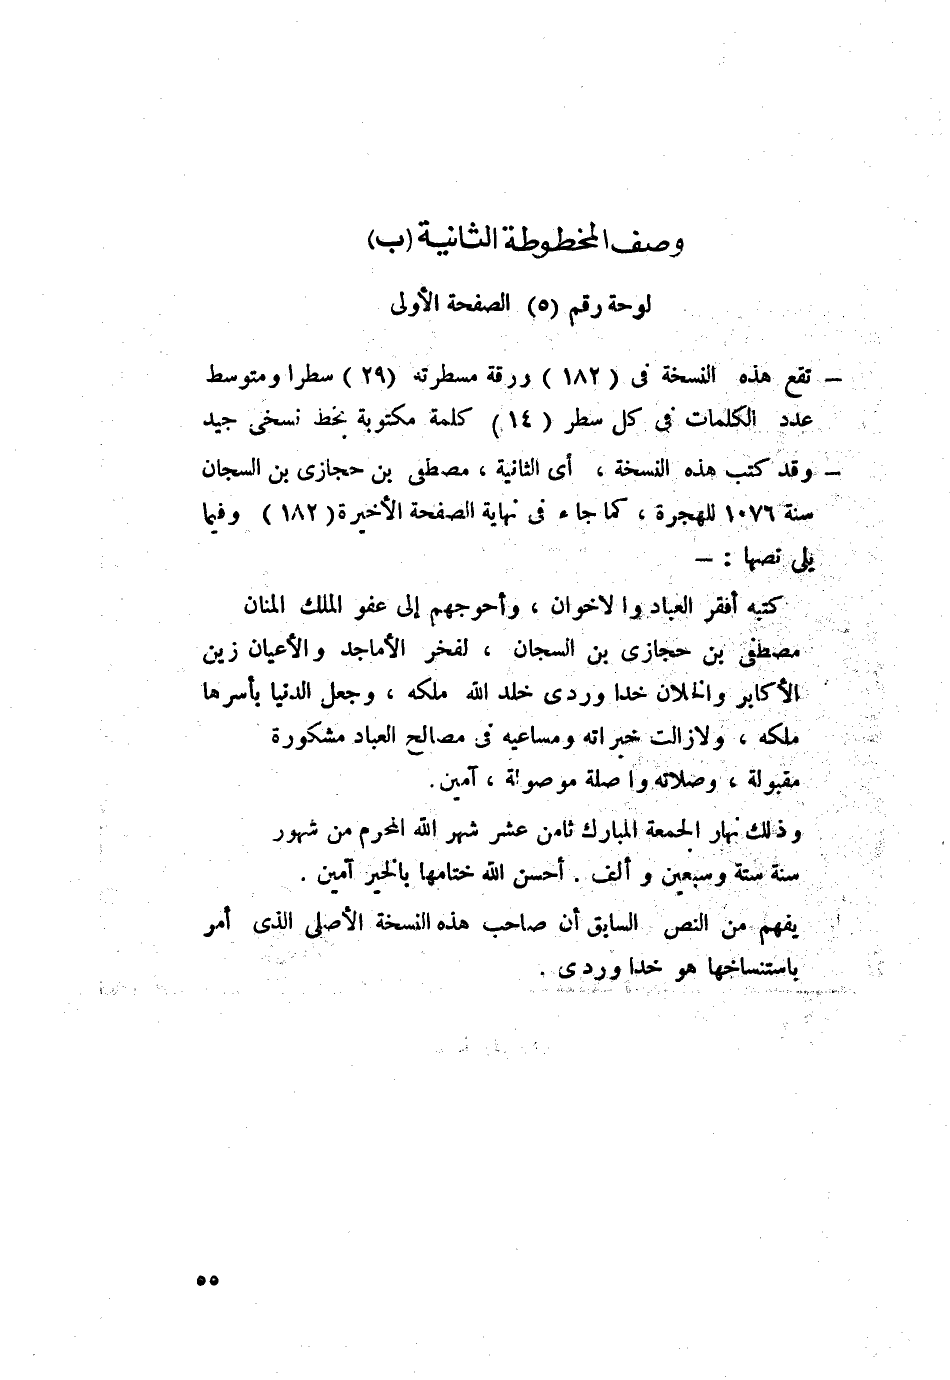 وصف المخطوطة الثانية (ب)
لوحة رقم (٥) الصفحة الأولى
— تقع هذه النسخة فى ( ١٨٢ ) ورقة مسطرته (٢٩ ) سطرا ومتوسط
عدد الكلمات فى كل سطر ( ١٤ ) كلمة مكتوبة بخط نسخى جيد
— وقد كتب هذه النسخة ، أى الثانية ، مصطفى بن حجازى بن السجان
سنة ١٠٧٦ للهجرة ، كما جاء فى نهاية الصفحة الأخيرة ( ١٨٢ ) وفيما
يلى نصها : —
كتبه أفقر العباد والاخوان ، وأحوجهم إلى عفو الملك المنان
مصطفى بن حجازى بن السجان ، لفخر الأماجد والأعيان زين
الأكابر والخلان خدا وردى خلد الله ملكه ، وجعل الدنيا بأسرها
ملكه ، ولازالت خيراته ومساعيه فى مصالح العباد مشكورة
مقبولة ، وصلاته واصلة موصولة ، آمين .
وذلك نهار الجمعة المبارك ثامن عشر شهر الله المحرم من شهور
سنة ستة وسبعين و ألف . أحسن الله ختامها بالخير آمين .
يفهم من النص السابق أن صاحب هذه النسخة الأصلى الذى أمر
باستنساخها هو خدا وردى .
٥٥